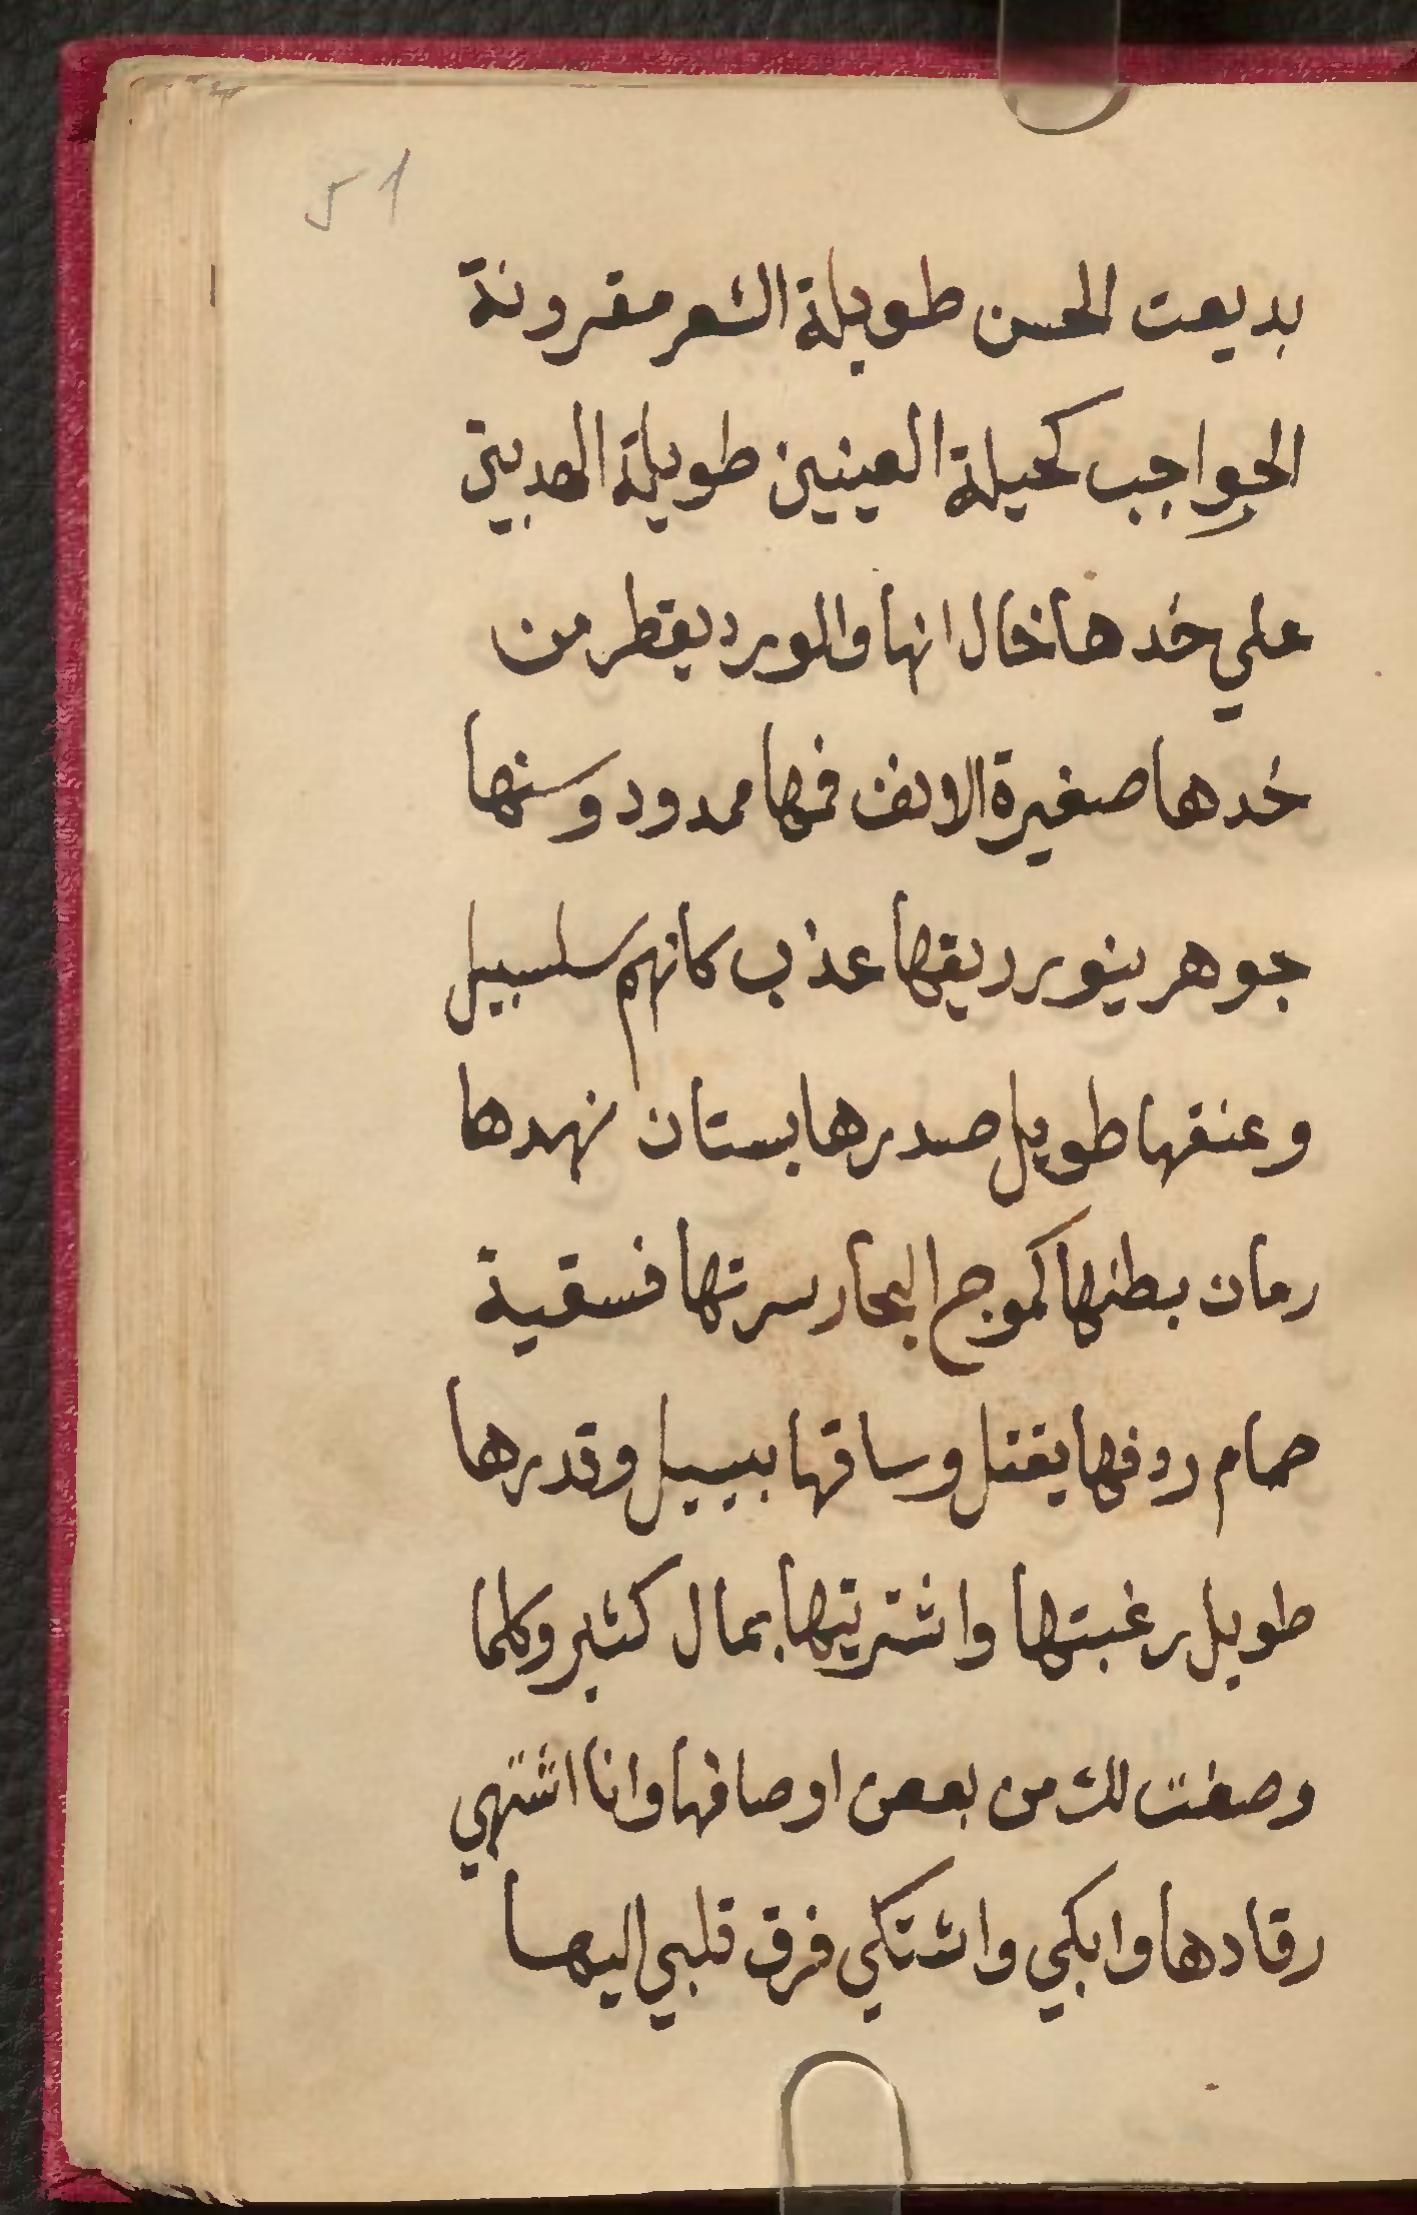 51
بديعت الحسن طويلة الشعر مقرونة
الحواجب كحيلة العينين طويلة الهدبين
علي خدها خال انها والورد يقطر من
خدها صغيرة الانف فمها ممدود وسنها
جوهر ينور ريقها عذب كانهم سلسبيل
وعنقها طويل صدرها بستان نهدها
رمان بطنها كموج البحار سرتها فسقية
حمام ردفها يقتل وساقها بيبيل وقدرها
طويل رغبتها واشتريتها بمال كثير وكلما
وصفت لك من بعض اوصافها وانا اشتهي
رقادها وابكي واشتكي فرق قلبي اليها